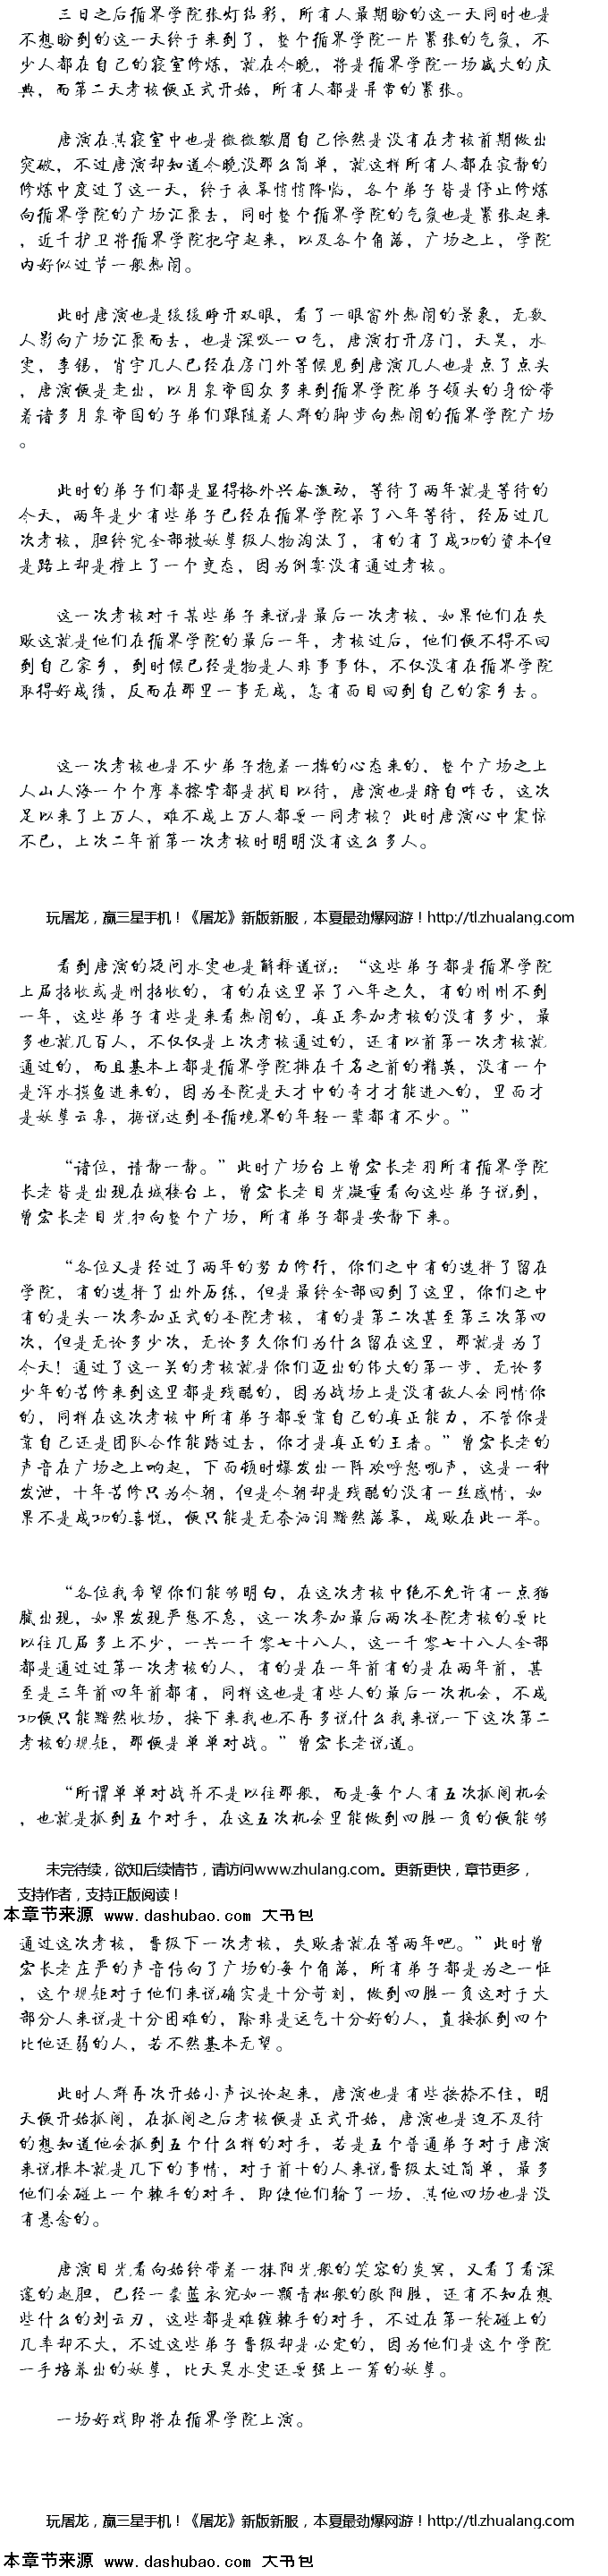 三日之后循界学院张灯结彩，所有人最期盼的这一天同时也是
不想盼到的这一天终于来到了，整个循界学院一片紧张的气氛，不
少人都在自己的寝室修炼，就在今晚，将是循界学院一场盛大的庆
典，而第二天考核便正式开始，所有人都是异常的紧张。
唐演在其寝室中也是微微皱眉自己依然是没有在考核前期做出
突破，不过唐演却知道今晚没那么简单，就这样所有人都在寂静的
修炼中度过了这一天，终于夜幕悄悄降临，各个弟子皆是停止修炼
向循界学院的广场汇聚去，同时整个循界学院的气氛也是紧张起来
，近千护卫将循界学院把守起来，以及各个角落，广场之上，学院
内好似过节一般热闹。
此时唐演也是缓缓睁开双眼，看了一眼窗外热闹的景象，无数
人影向广场汇聚而去，也是深吸一口气，唐演打开房门，天昊，水
雯，李锡，肖宇几人已经在房门外等候见到唐演几人也是点了点头
，唐演便是走出，以月泉帝国众多来到循界学院弟子领头的身份带
着诸多月泉帝国的子弟们跟随着人群的脚步向热闹的循界学院广场
。
此时的弟子们都是显得格外兴奋激动，等待了两年就是等待的
今天，两年是少有些弟子已经在循界学院呆了八年等待，经历过几
次考核，胆终究全部被妖孽级人物淘汰了，有的有了成功的资本但
是路上却是撞上了一个变态，因为倒霉没有通过考核。
这一次考核对于某些弟子来说是最后一次考核，如果他们在失
败这就是他们在循界学院的最后一年，考核过后，他们便不得不回
到自己家乡，到时候已经是物是人非事事休，不仅没有在循界学院
取得好成绩，反而在那里一事无成，怎有面目回到自己的家乡去。
这一次考核也是不少弟子抱着一搏的心态来的，整个广场之上
人山人海一个个摩拳擦掌都是拭目以待，唐演也是暗自咋舌，这次
足以来了上万人，难不成上万人都要一同考核？此时唐演心中震惊
不已，上次二年前第一次考核时明明没有这么多人。
玩屠龙，赢三星手机！《屠龙》新版新服，本夏最劲爆网游！http://tl.zhualang.com
看到唐演的疑问水雯也是解释道说：“这些弟子都是循界学院
上届招收或是刚招收的，有的在这里呆了八年之久，有的刚刚不到
一年，这些弟子有些是来看热闹的，真正参加考核的没有多少，最
多也就几百人，不仅仅是上次考核通过的，还有以前第一次考核就
通过的，而且基本上都是循界学院排在千名之前的精英，没有一个
是浑水摸鱼进来的，因为圣院是天才中的奇才才能进入的，里面才
是妖孽云集，据说达到圣循境界的年轻一辈都有不少。”
“诸位，请静一静。”此时广场台上曾宏长老羽所有循界学院
长老皆是出现在城楼台上，曾宏长老目光凝重看向这些弟子说到，
曾宏长老目光扫向整个广场，所有弟子都是安静下来。
“各位又是经过了两年的努力修行，你们之中有的选择了留在
学院，有的选择了出外历练，但是最终全部回到了这里，你们之中
有的是头一次参加正式的圣院考核，有的是第二次甚至第三次第四
次，但是无论多少次，无论多久你们为什么留在这里，那就是为了
今天！通过了这一关的考核就是你们迈出的伟大的第一步，无论多
少年的苦修来到这里都是残酷的，因为战场上是没有敌人会同情你
的，同样在这次考核中所有弟子都要靠自己的真正能力，不管你是
靠自己还是团队合作能踏过去，你才是真正的王者。”曾宏长老的
声音在广场之上响起，下面顿时爆发出一阵欢呼怒吼声，这是一种
发泄，十年苦修只为今朝，但是今朝却是残酷的没有一丝感情，如
果不是成功的喜悦，便只能是无奈洒泪黯然落幕，成败在此一举。
“各位我希望你们能够明白，在这次考核中绝不允许有一点猫
腻出现，如果发现严惩不怠，这一次参加最后两次圣院考核的要比
以往几届多上不少，一共一千零七十八人，这一千零七十八人全部
都是通过过第一次考核的人，有的是在一年前有的是在两年前，甚
至是三年前四年前都有，同样这也是有些人的最后一次机会，不成
功便只能黯然收场，接下来我也不再多说什么我来说一下这次第二
考核的规矩，那便是单单对战。”曾宏长老说道。
“所谓单单对战并不是以往那般，而是每个人有五次抓阄机会
，也就是抓到五个对手，在这五次机会里能做到四胜一负的便能够
未完待续，欲知后续情节，请访问www.zhulang.com。更新更快，章节更多，
支持作者，支持正版阅读！
本章节来源 www.dashubao.com 大书包
通过这次考核，晋级下一次考核，失败者就在等两年吧。”此时曾
宏长老庄严的声音传向了广场的每个角落，所有弟子都是为之一怔
，这个规矩对于他们来说确实是十分苛刻，做到四胜一负这对于大
部分人来说是十分困难的，除非是运气十分好的人，直接抓到四个
比他还弱的人，若不然基本无望。
此时人群再次开始小声议论起来，唐演也是有些按捺不住，明
天便开始抓阄，在抓阄之后考核便是正式开始，唐演也是迫不及待
的想知道他会抓到五个什么样的对手，若是五个普通弟子对于唐演
来说根本就是几下的事情，对于前十的人来说晋级太过简单，最多
他们会碰上一个棘手的对手，即使他们输了一场，其他四场也是没
有悬念的。
唐演目光看向始终带着一抹阳光般的笑容的炎冥，又看了看深
邃的赵胆，已经一袭蓝衣宛如一颗青松般的欧阳胜，还有不知在想
些什么的刘云刃，这些都是难缠棘手的对手，不过在第一轮碰上的
几率却不大，不过这些弟子晋级却是必定的，因为他们是这个学院
一手培养出的妖孽，比天昊水雯还要强上一筹的妖孽。
一场好戏即将在循界学院上演。
玩屠龙，赢三星手机！《屠龙》新版新服，本夏最劲爆网游！http://tl.zhualang.com
本章节来源 www.dashubao.com 大书包